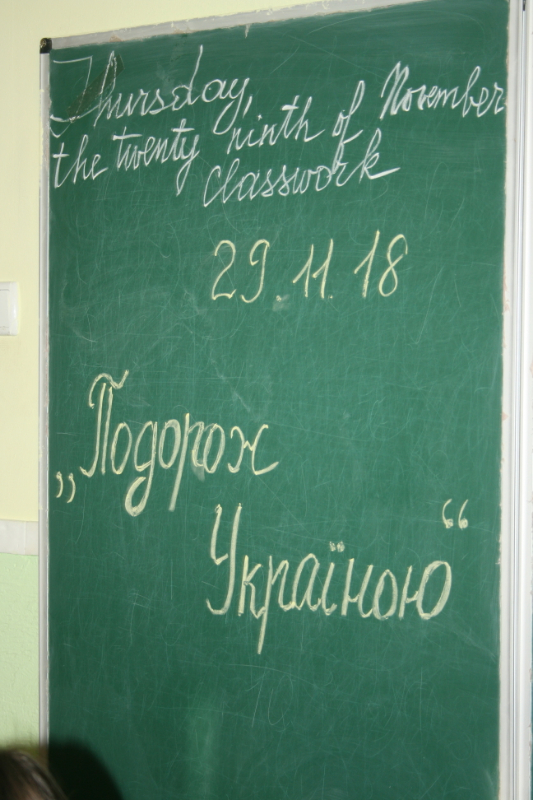 Thursday,
the twenty ninth of November
classwork
29.11.18
„Подорож
Україною“